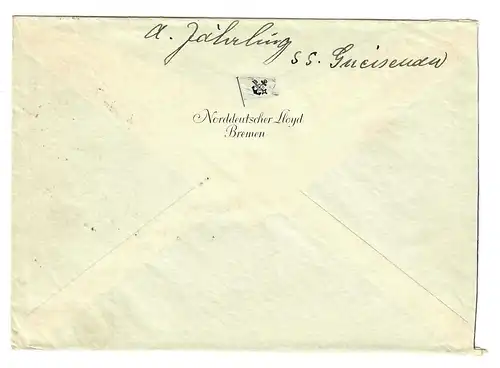 A. Jährling
SS. Gneisenau
Norddeutscher Lloyd
Bremen